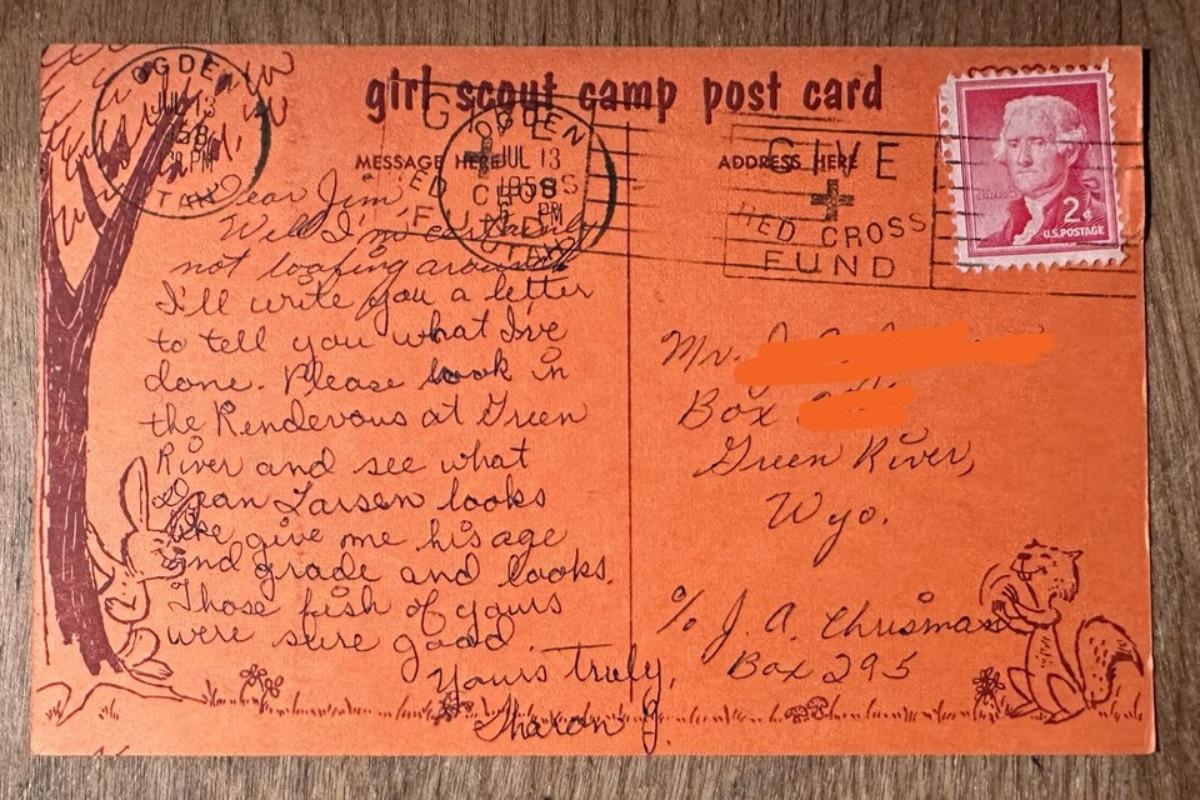 girl scout camp post card
MESSAGE HERE
ADDRESS HERE
OGDEN
JUL 13
1958
PM
UTAH
OGDEN
JUL 13
1958
PM
UTAH
GIVE
RED CROSS
FUND
GIVE
RED CROSS
FUND
2¢
U.S. POSTAGE
Dear Jim,
Well I'm certainly
not loafing around
I'll write you a letter
to tell you what I've
done. Please look in
the Rendevous at Green
River and see what
Dean Larsen looks
like give me his age
and grade and looks.
Those fish of yours
were sure good.
Yours truly,
Sharon J.
Mr. J.
Box
Green River,
Wyo.
% J. A. Chrisman
Box 295